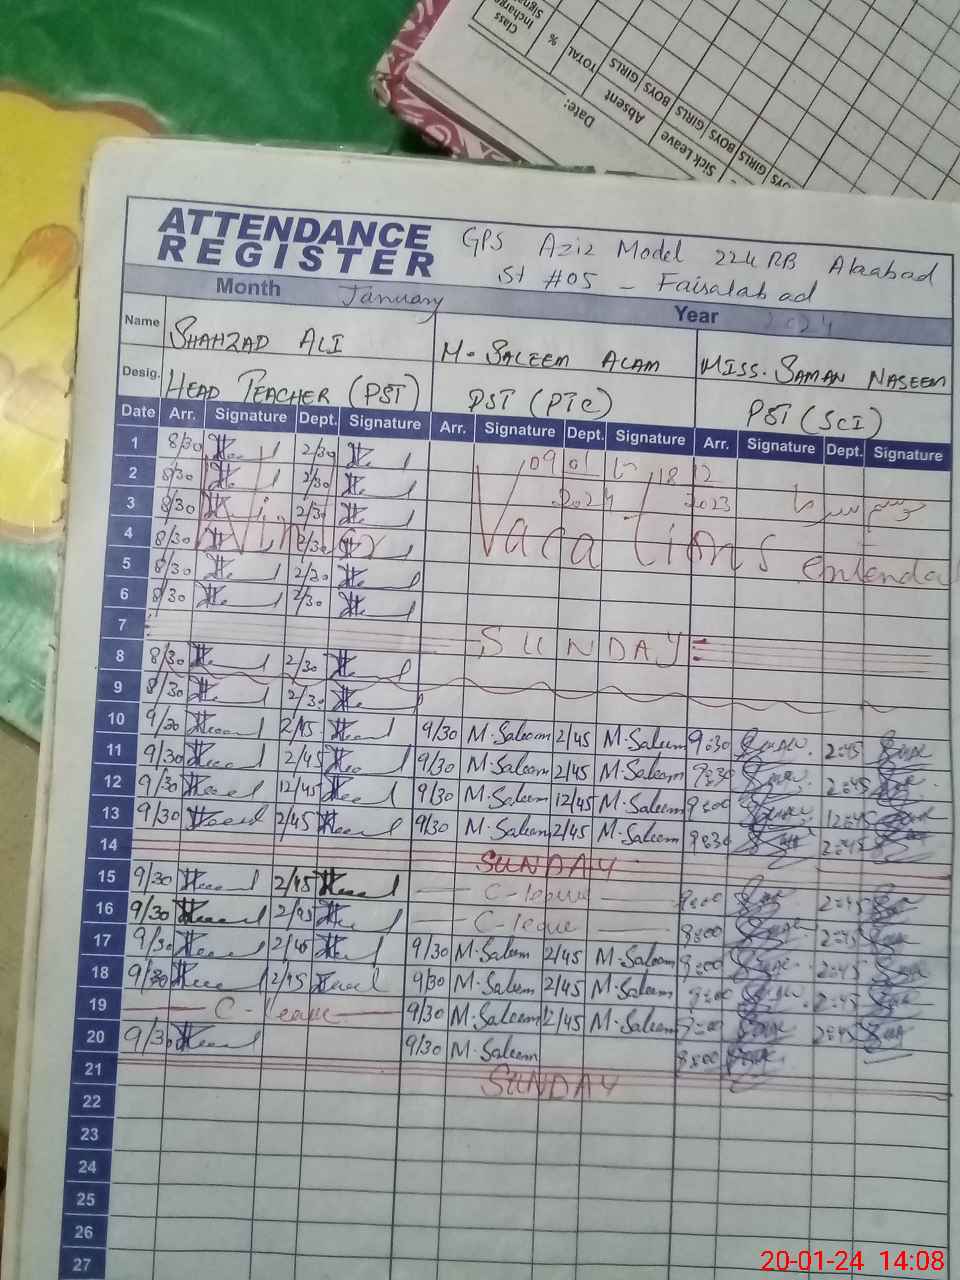 Class
Incharge
%
TOTAL
BOYS GIRLS
Absent
BOYS GIRLS
Sick Leave
BOYS GIRLS
Date:
ATTENDANCE
REGISTER
GPS Aziz Model 224 RB Alaabad
st #05 - Faisalabad
Month January Year 2024
Name SHAHZAD ALI M. SALEEM ALAM MISS. SAMAN NASEEM
Desig. HEAD TEACHER (PST) PST (PTC) PST (SCI)
Date Arr. Signature Dept. Signature Arr. Signature Dept. Signature Arr. Signature Dept. Signature
1 8/30 2/30
2 8/30 2/30 09 01 18 12
3 8/30 2/30 2024 2023
4 8/30 2/30 Winter Vacations
5 8/30 2/30
6 8/30 2/30
7 SUNDAY
8 8/30 2/30
9 8/30 2/30
10 9/30 2/45 9/30 M.Saleem 2/45 M.Saleem 9:30 2:45
11 9/30 2/45 9/30 M.Saleem 2/45 M.Saleem 9:30 2:45
12 9/30 12/45 9/30 M.Saleem 12/45 M.Saleem 9:00 12:45
13 9/30 2/45 9/30 M.Saleem 2/45 M.Saleem 9:30 2:45
14 SUNDAY
15 9/30 2/45 C-leave 2:45
16 9/30 2/45 C-leave 2:45
17 9/30 2/45 9/30 M.Saleem 2/45 M.Saleem 9:00 2:45
18 9/30 2/45 9/30 M.Saleem 2/45 M.Saleem 9:00 2:45
19 C-leave 9/30 M.Saleem 2/45 M.Saleem 9:00 2:45
20 9/30 9/30 M.Saleem
21 SUNDAY
22
23
24
25
26
27
20-01-24 14:08